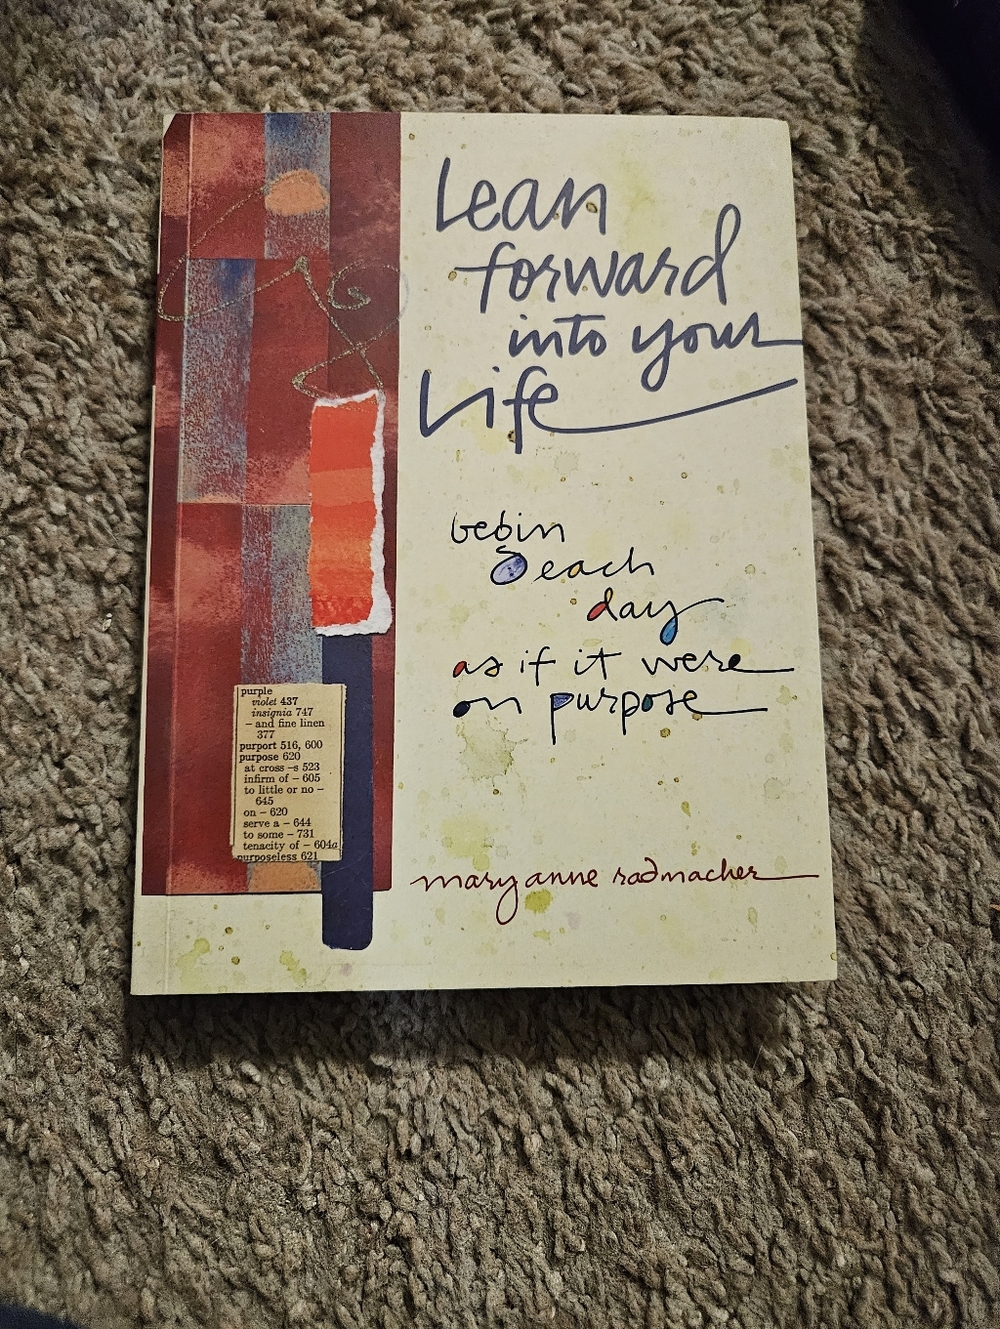 Lean
forward
into your
Life
begin
each
day
as if it were
on purpose
purple
violet 437
insignia 747
– and fine linen
377
purport 516, 600
purpose 620
at cross –s 523
infirm of – 605
to little or no –
645
on – 620
serve a – 644
to some – 731
tenacity of – 604a
purposeless 621
mary anne radmacher